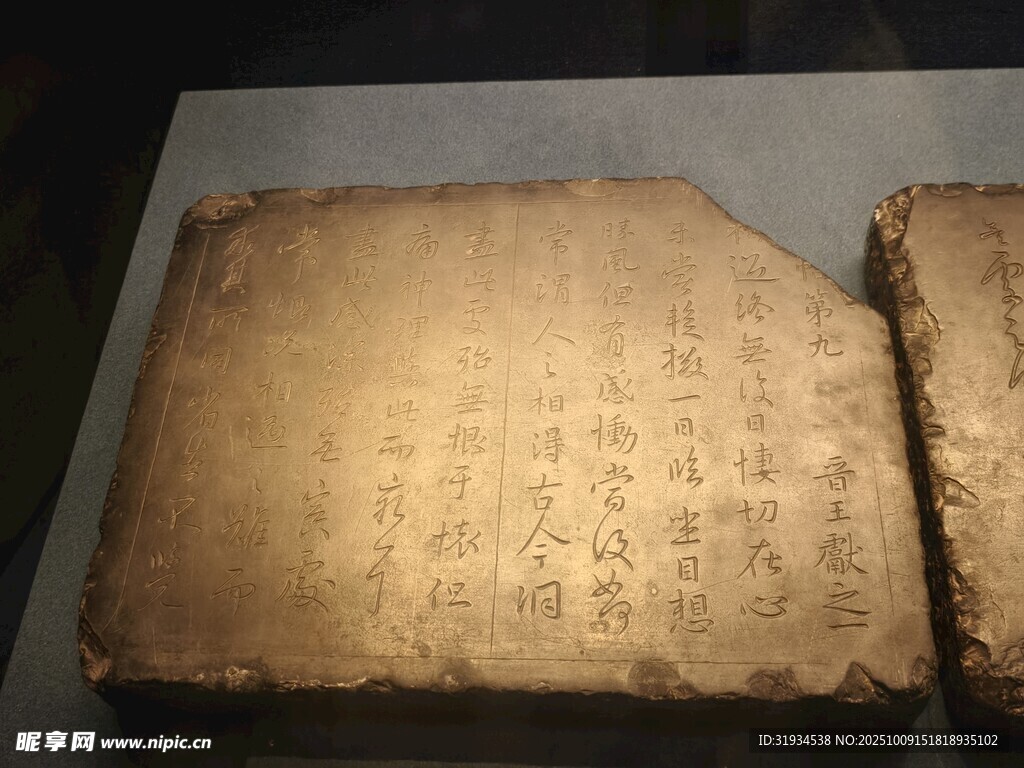 帖第九 晉王獻之一
相過終無復日悽切在心
未嘗暫掇一日臨坐目想
勝風但有感慟當復如何
常謂人之相得古今洞
盡此處殆無恨于懷但
痛神理與此而窮耳
盡此感深殆無冥處
常恨況相遇之難而
乖其所同省告不覺
昵享网 www.nipic.cn
ID:31934538 NO:20251009151818935102